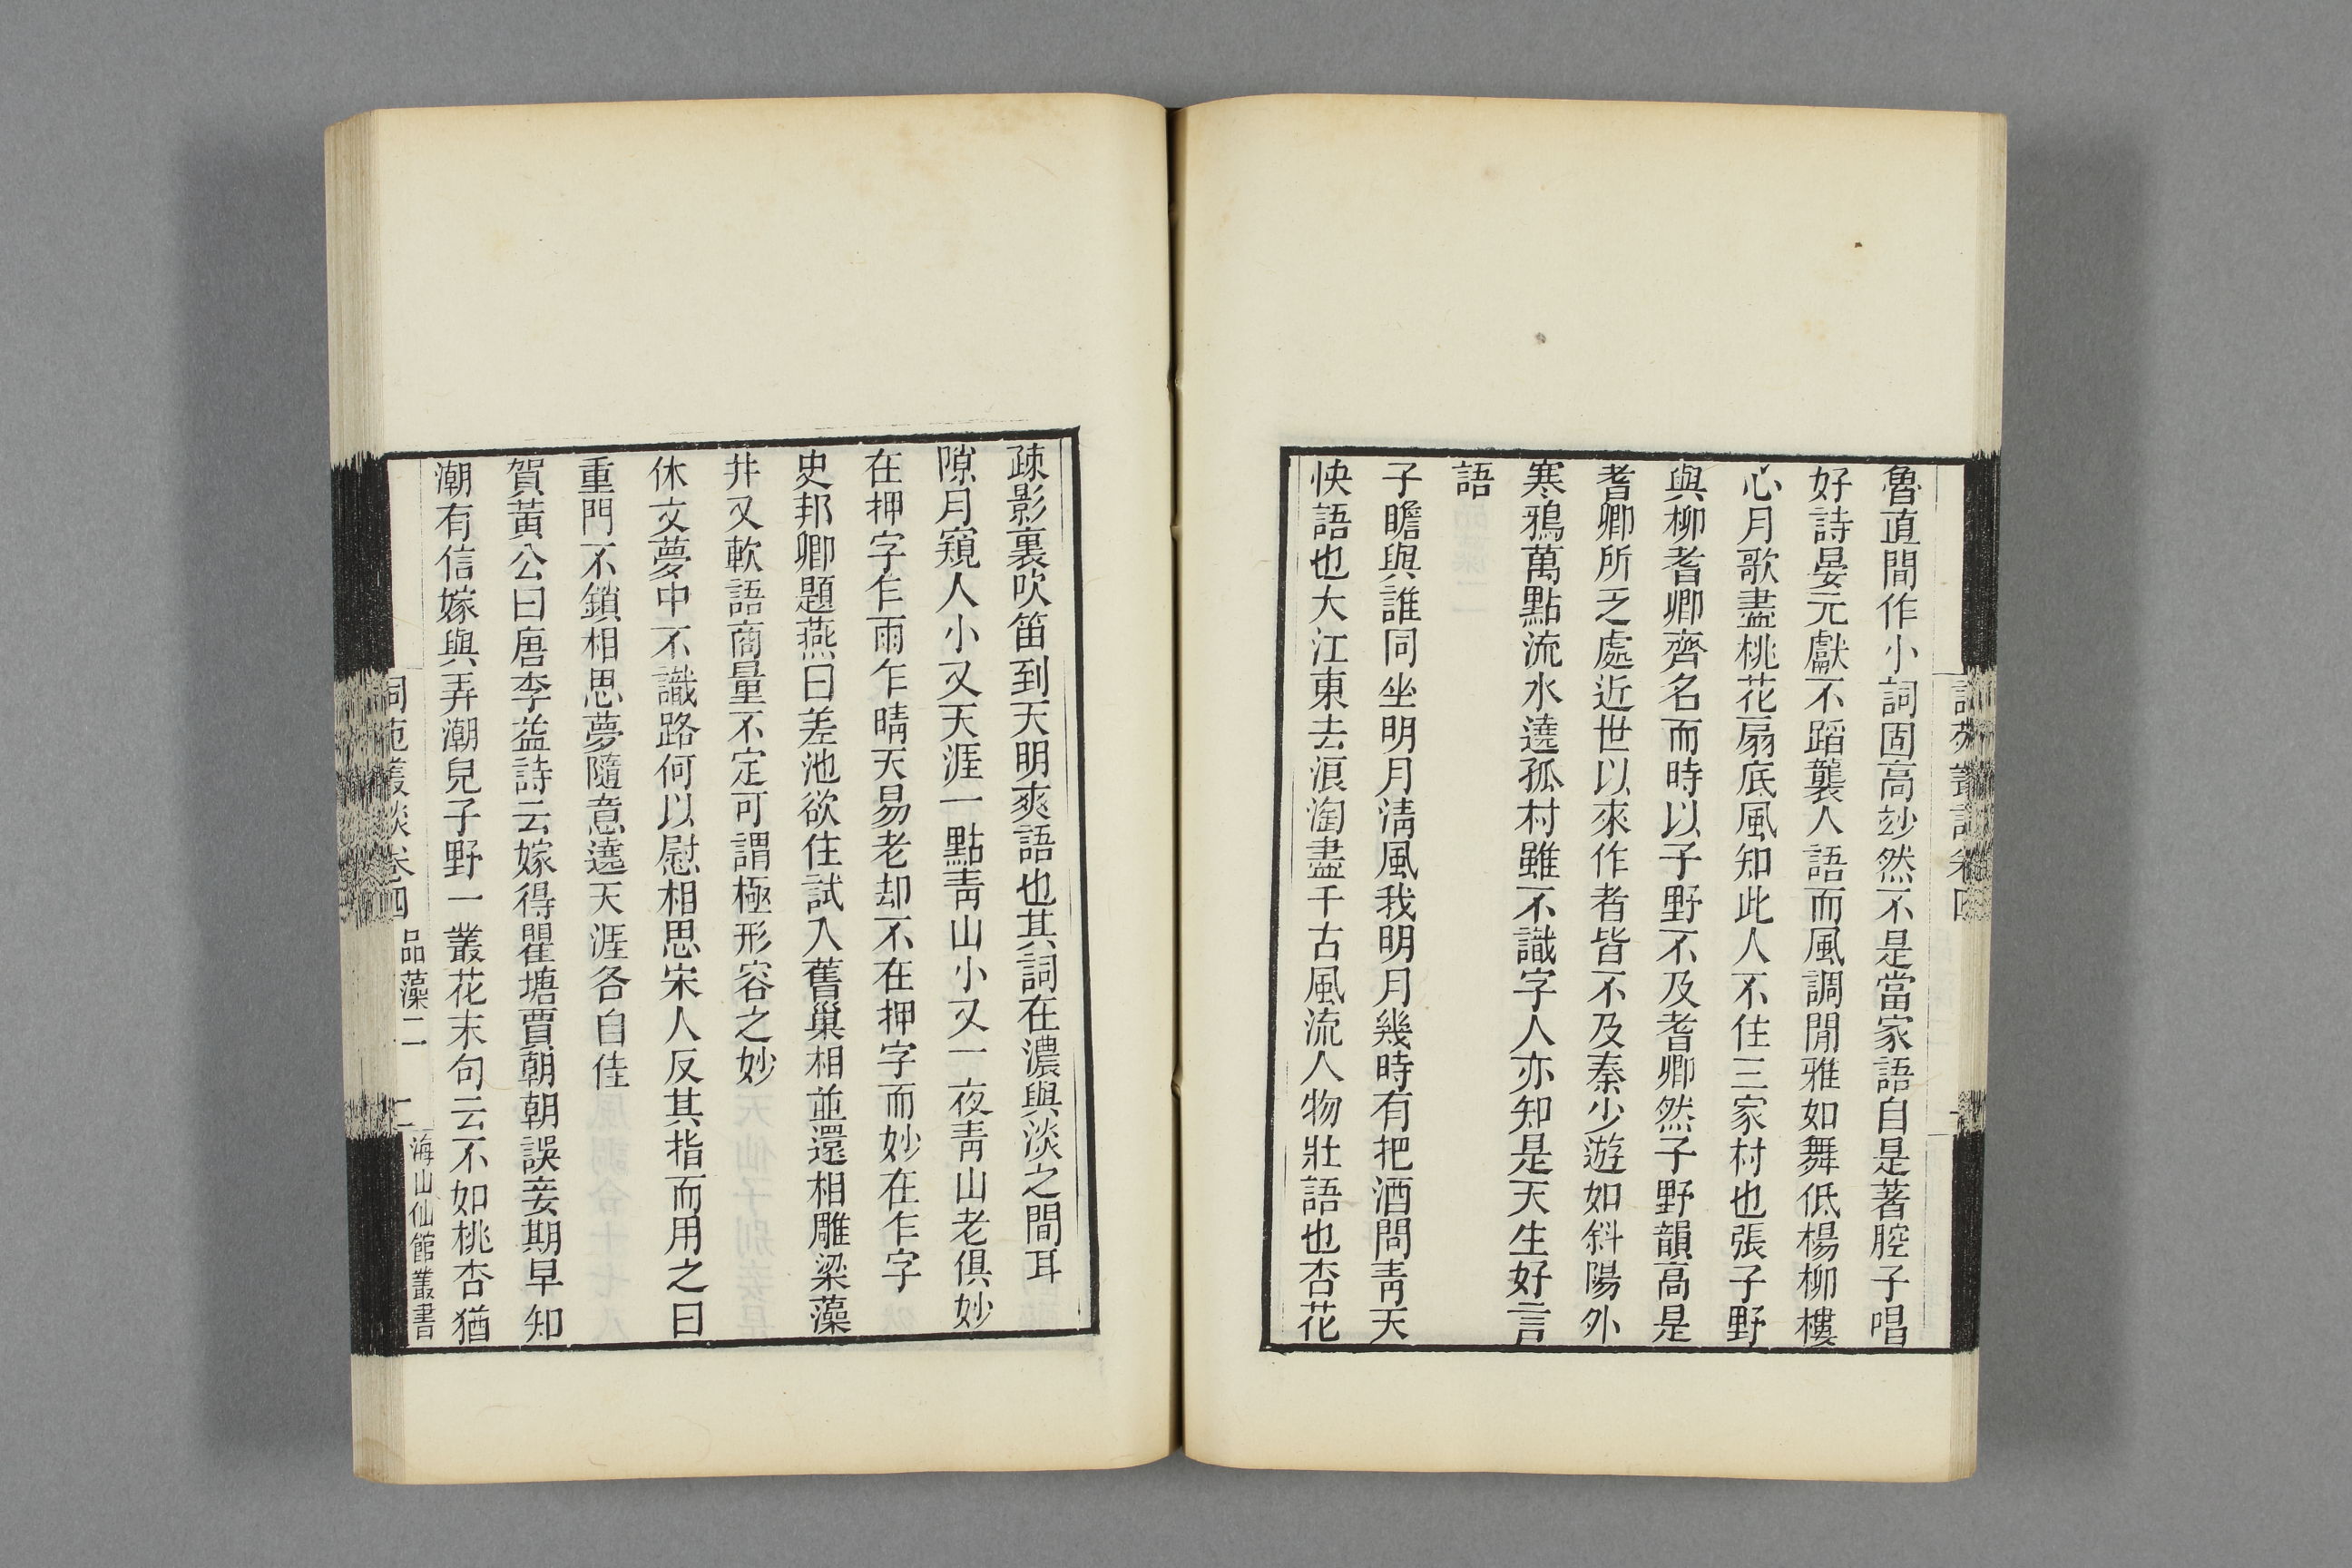 魯直間作小詞固高玅然不是當家語自是著腔子唱
好詩晏元獻不蹈襲人語而風調閒雅如舞低楊柳樓
心月歌盡桃花扇底風知此人不住三家村也張子野
與柳耆卿齊名而時以子野不及耆卿然子野韻高是
耆卿所乏處近世以來作者皆不及秦少遊如斜陽外
寒鴉萬點流水遶孤村雖不識字人亦知是天生好言
語
子瞻與誰同坐明月淸風我明月幾時有把酒問靑天
快語也大江東去浪淘盡千古風流人物壯語也杏花
疎影裏吹笛到天明爽語也其詞在濃與淡之間耳
隙月窺人小又天涯一點靑山小又一夜靑山老俱妙
在押字乍雨乍晴天易老却不在押字而妙在乍字
史邦卿題燕曰差池欲住試入舊巢相並還相雕梁藻
井又軟語商量不定可謂極形容之妙
休文夢中不識路何以慰相思宋人反其指而用之曰
重門不鎖相思夢隨意遶天涯各自佳
賀黃公曰唐李益詩云嫁得瞿塘賈朝朝誤妾期早知
潮有信嫁與弄潮兒子野一叢花末句云不如桃杏猶
詞苑叢談卷四 品藻二 二 海山仙館叢書